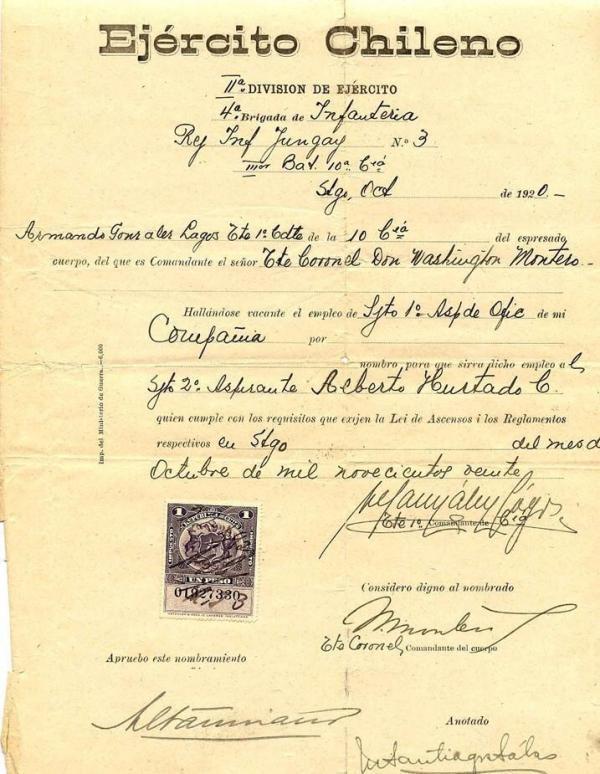 Ejército Chileno
IIa. DIVISION DE EJÉRCITO
4a. Brigada de Infanteria
Rej Inf Yungay N.o 3
IIIer Bat. 10a Cía
Stgo, Oct de 1920.-
Armando Gonzales Lagos Tte 1o Cdte de la 10 Cía del espresado
cuerpo, del que es Comandante el señor Tte Coronel Don Washington Montero
Hallándose vacante el empleo de Sjto 1o Asp de Ofic de mi
Compañia por
nombro para que sirva dicho empleo al
Sjto 2o Aspirante Alberto Hurtado C.
quien cumple con los requisitos que exijen la Lei de Ascensos i los Reglamentos
respectivos en Stgo del mes de
Octubre de mil novecientos veinte
Imp. del Ministerio de Guerra.—6,000
Tte 1o Comandante de Cía
1 1
IMPUESTO
UN PESO
01927330
Considero digno al nombrado
Tte Coronel, Comandante del cuerpo
Apruebo este nombramiento
Altamirano
Anotado